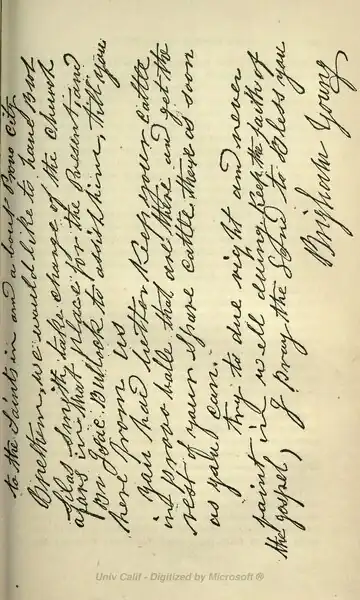 to the Saints in and a bout Provo City
Brethren we would like to have Bot
Elias Smith take charge of the Church
afars in that place for the Present, and
Br Isac Bullock to assist him, till you
here from us
you had better keep your cattle
in Provo vale that are there and get the
rest of your spare cattle there as soon
as you can.
try to due right and never
faint in well duing keep the faith of
the gospel, I pray the Lord to Bless you
Brigham Young
Univ Calif - Digitized by Microsoft ®